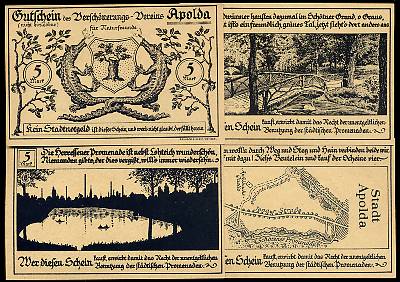 Gutschein des Verschönerungs-Vereins Apolda
für Naturfreunde
5 Mark
5 Mark
Kein Stadtnotgeld ist dieser Schein, und wer's nicht glaubt, der fällt herein
dwinner hausten dazumal im Schötner Grund, o Graus,
t ists ein freundlich, grünes Tal, jetzt sieht's dort anders aus
en Schein kauft, erwirbt damit das Recht der unentgeltlichen
Benutzung der städtischen Promenaden.
5 Mark
Die Herressener Promenade ist nebst Lohteich wunderschön,
Niemanden gibt's, der dies vergißt, will's immer wiedersehn.
Wer diesen Schein kauft, erwirbt damit das Recht der unentgeltlichen
Benutzung der städtischen Promenaden.
n wollt's durch Weg und Steg und Hain verbinden beide wir
mit dazu! Zieh's Beutelein und kauf der Scheine vier
Stadt
Apolda
en Schein kauft, erwirbt damit das Recht der unentgeltlichen
Benutzung der städtischen Promenaden.